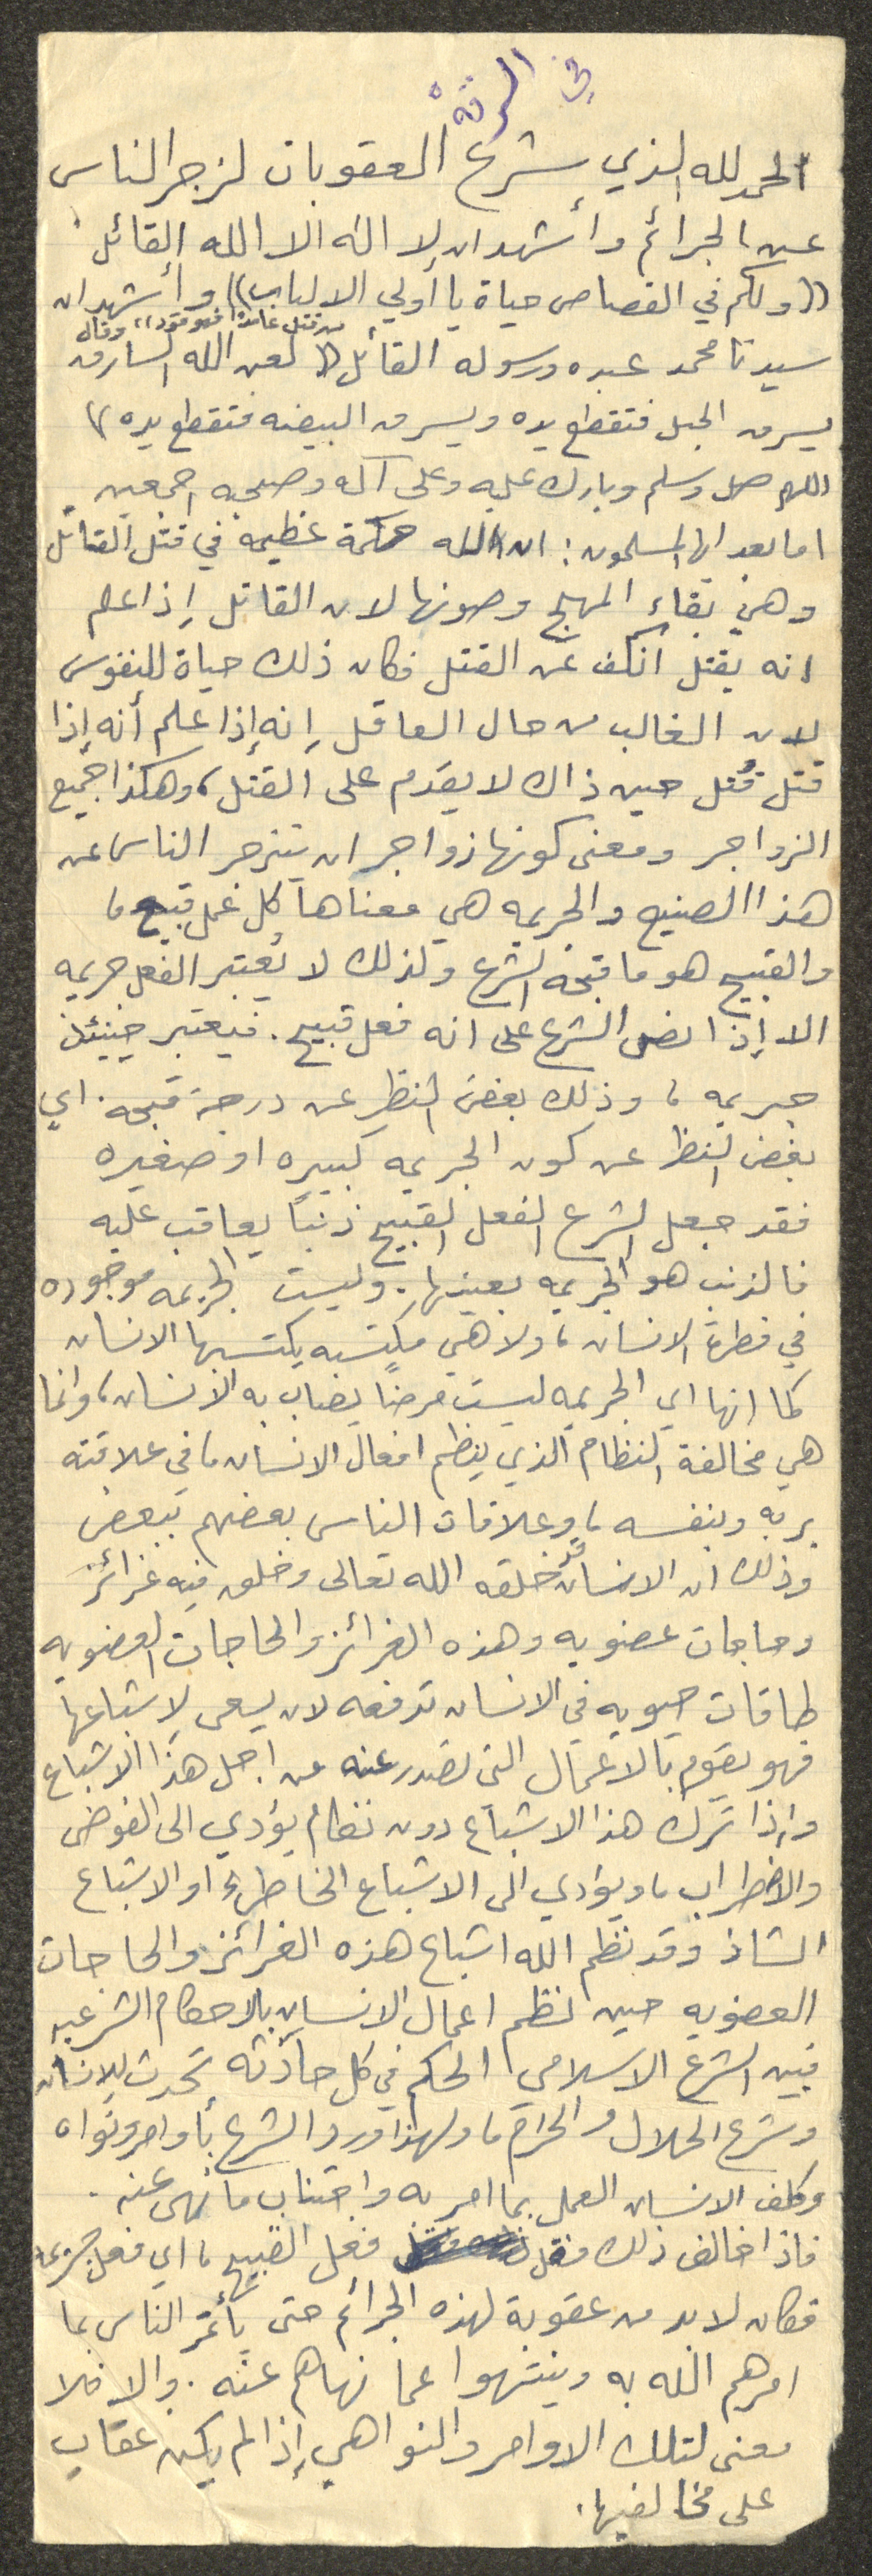 في السرقة
الحمد لله الذي شرع العقوبات لزجر الناس
عن الجرائم وأشهد ان لا اله الا الله القائل
((ولكم في القصاص حياة يا أولي الالباب)) وأشهد ان
من قتل عامداً فهو قود)) وقال
سيدنا محمد عبده ورسوله القائل (( لعن الله السارق
يسرق الحبل فتقطع يده ويسرق البيضه فتقطع يده ))
اللهم صل وسلم وبارك عليه وعلى آله وصحبه اجمعين
اما بعد ايها المسلمون: ان لله حكمة عظيمه في قتل القاتل
وهي بقاء المهج وصونها لان القاتل إذا علم
انه يقتل انكف عن القتل فكان ذلك حياة للنفوس
لان الغالب من حال العاقل إنه إذا علم أنه إذا
قتل قُتل حين ذاك لا يقدم على القتل، وهكذا جميع
الزواجر ومعنى كونها زواجر ان ينزجر الناس عن
هذا الصنيع والجريمه هي معناها كل عمل قبيح،
والقبيح هو ما قبحه الشرع ولذلك لا يُعتبر الفعل جريمه
الا إذا نص الشرع على انه فعل قبيح. فيعتبر حينئذ
جريمه، وذلك بغض النظر عن درجة قبحه. اي
بغض النظر عن كون الجريمه كبيره او صغيره
فقد جعل الشرع الفعل القبيح ذنباً يعاقب عليه
فالذنب هو الجريمه بعينها. وليست الجريمه موجوده
في فطرة الانسان، ولا هي مكتسبه يكتسبها الانسان
كما انها اي الجريمه ليست مرضاً يصاب به الانسان، وانما
هي مخالفة النظام الذي ينظم افعال الانسان، في علاقته
بربه وبنفسه، وعلاقات الناس بعضهم ببعض
وذلك ان الانسان قد خلقه الله تعالى وخلق فيه غرائز
وحاجات عضويه وهذه الغرائز والحاجات العضويه
طاقات حيويه في الانسان تدفعه لان يسعى لاشباعها
فهو يقوم بالاعمال التي تصدر عنه من اجل هذا الاشباع
وإذا ترك هذا الاشباع دون نظام يؤدي الى الفوضى
والاضطراب، ويؤدي الى الاشباع الخاطىء او الاشباع
الشاذ وقد نظم الله اشباع هذه الغرائز والحاجات
العضويه حين نظم اعمال الانسان بالاحكام الشرعيه
فبين الشرع الاسلامي الحكم في كل حادثه تحدث للانسان
وشرع الحلال والحرام، ولهذا ورد الشرع بأوامر ونواه
وكلف الانسان العمل بما امر به واجتناب ما نهى عنه.
فاذا خالف ذلك فعل القبيح، اي فعل جريمه
فكان لا بد من عقوبة لهذه الجرائم حتى يأتمر الناس بما
امرهم الله به وينتهوا عما نهاهم عنه. والا فلا
معنى لتلك الاوامر والنواهي إذا لم يكن عقاب
على مخالفيها.